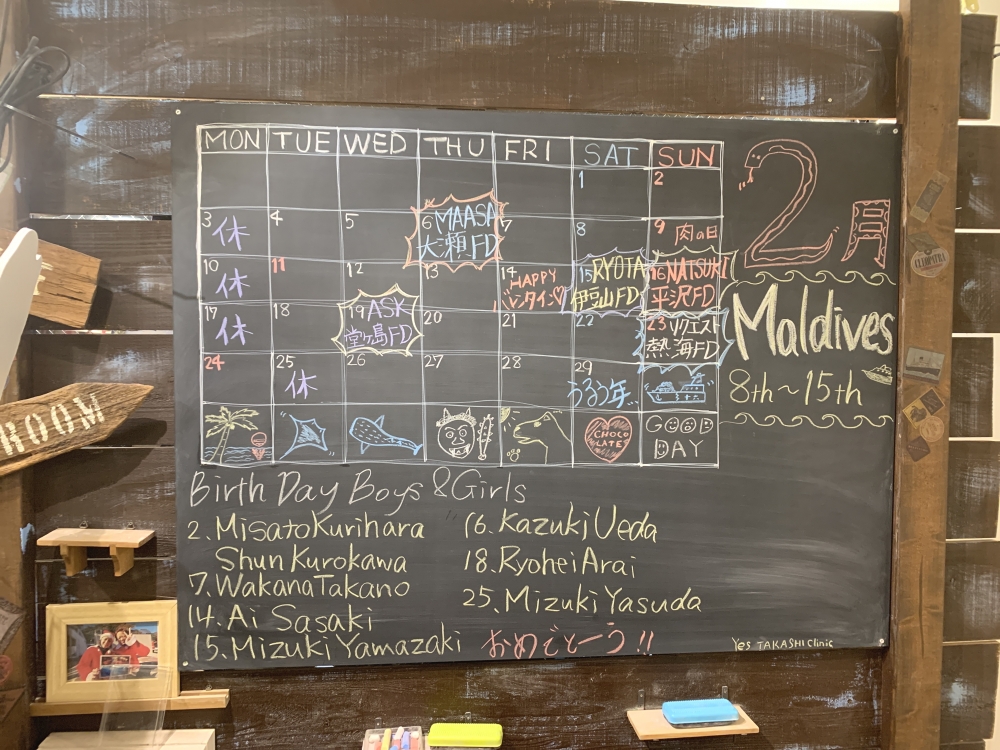 MON TUE WED THU FRI SAT SUN
1 2
3 休 4 5 6 MAASA 7 8 9 肉の日
大瀬FD
10 休 11 12 13 14 HAPPY 15 RYOTA 16 NATSUKI
バレンタイン♡ 伊豆山FD 平沢FD
17 休 18 19 ASK 20 21 22 23 リクエスト
堂ヶ島FD 熱海FD
24 25 休 26 27 28 29 うるう年..
CHOCO GOOD
LATE DAY
2月
Maldives
8th~15th
Birth Day Boys & Girls
2. Misato Kurihara
Shun Kurokawa
7. Wakana Takano
14. Ai Sasaki
15. Mizuki Yamazaki
16. Kazuki Ueda
18. Ryohei Arai
25. Mizuki Yasuda
おめでとーう!!
Yes TAKASHI Clinic
ROOM
CLEOPATRA